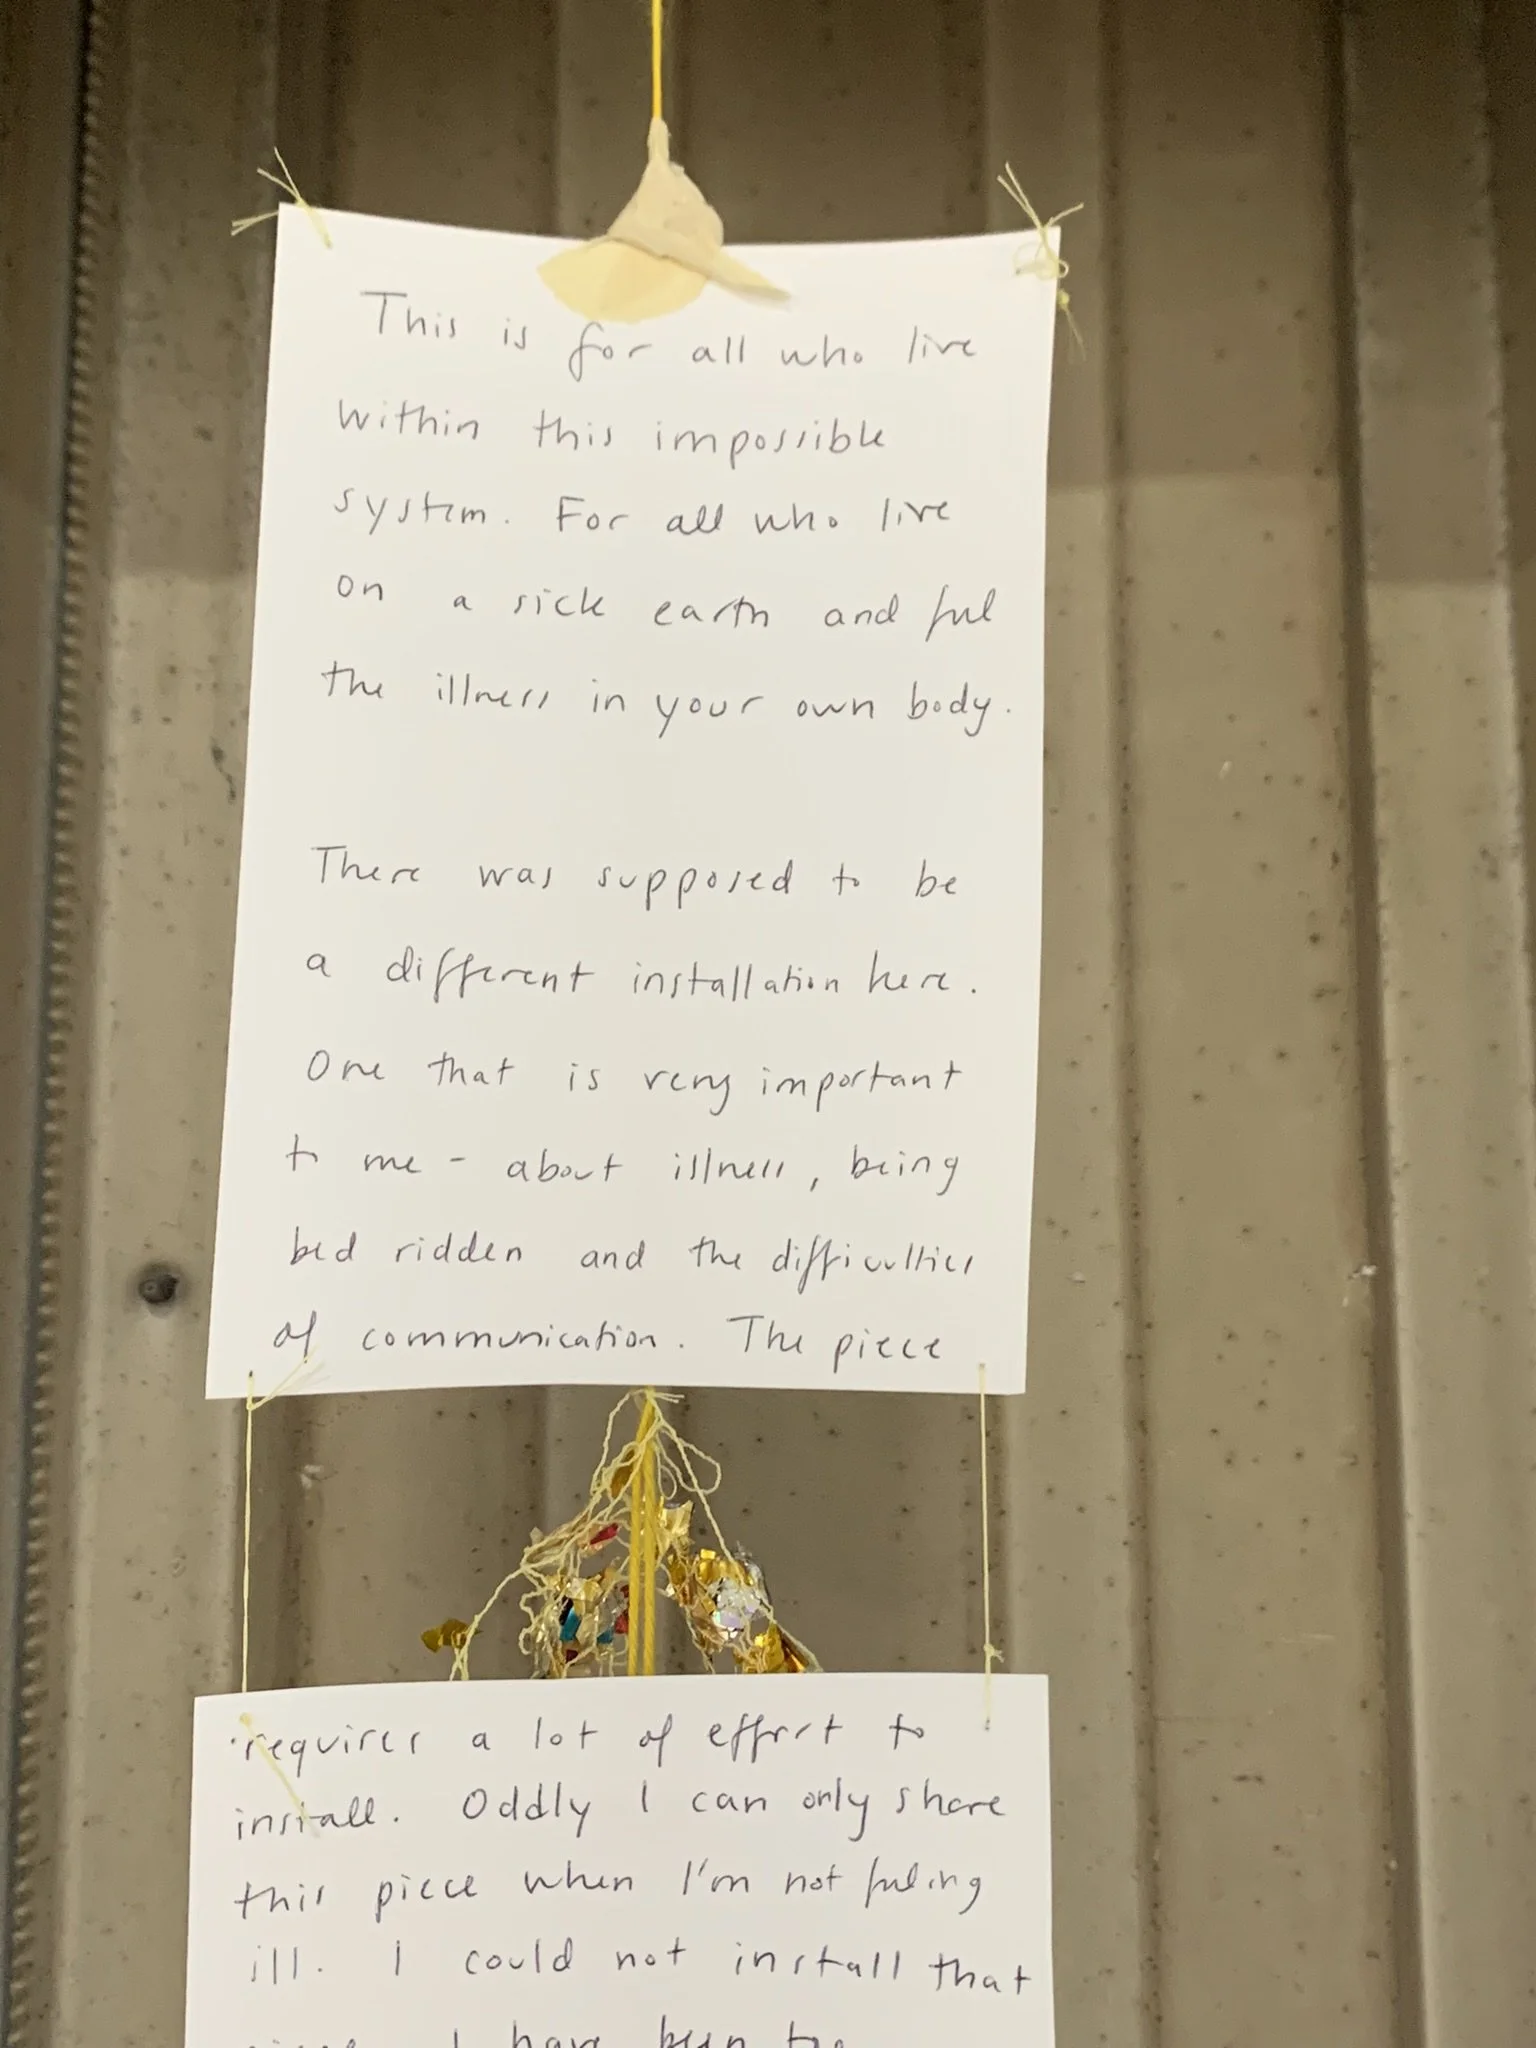 This is for all who live
within this impossible
system. For all who live
on a sick earth and feel
the illness in your own body.
There was supposed to be
a different installation here.
One that is very important
to me - about illness, being
bed ridden and the difficulties
of communication. The piece
requires a lot of effort to
install. Oddly I can only share
this piece when I'm not feeling
ill. I could not install that
piece. I have been too